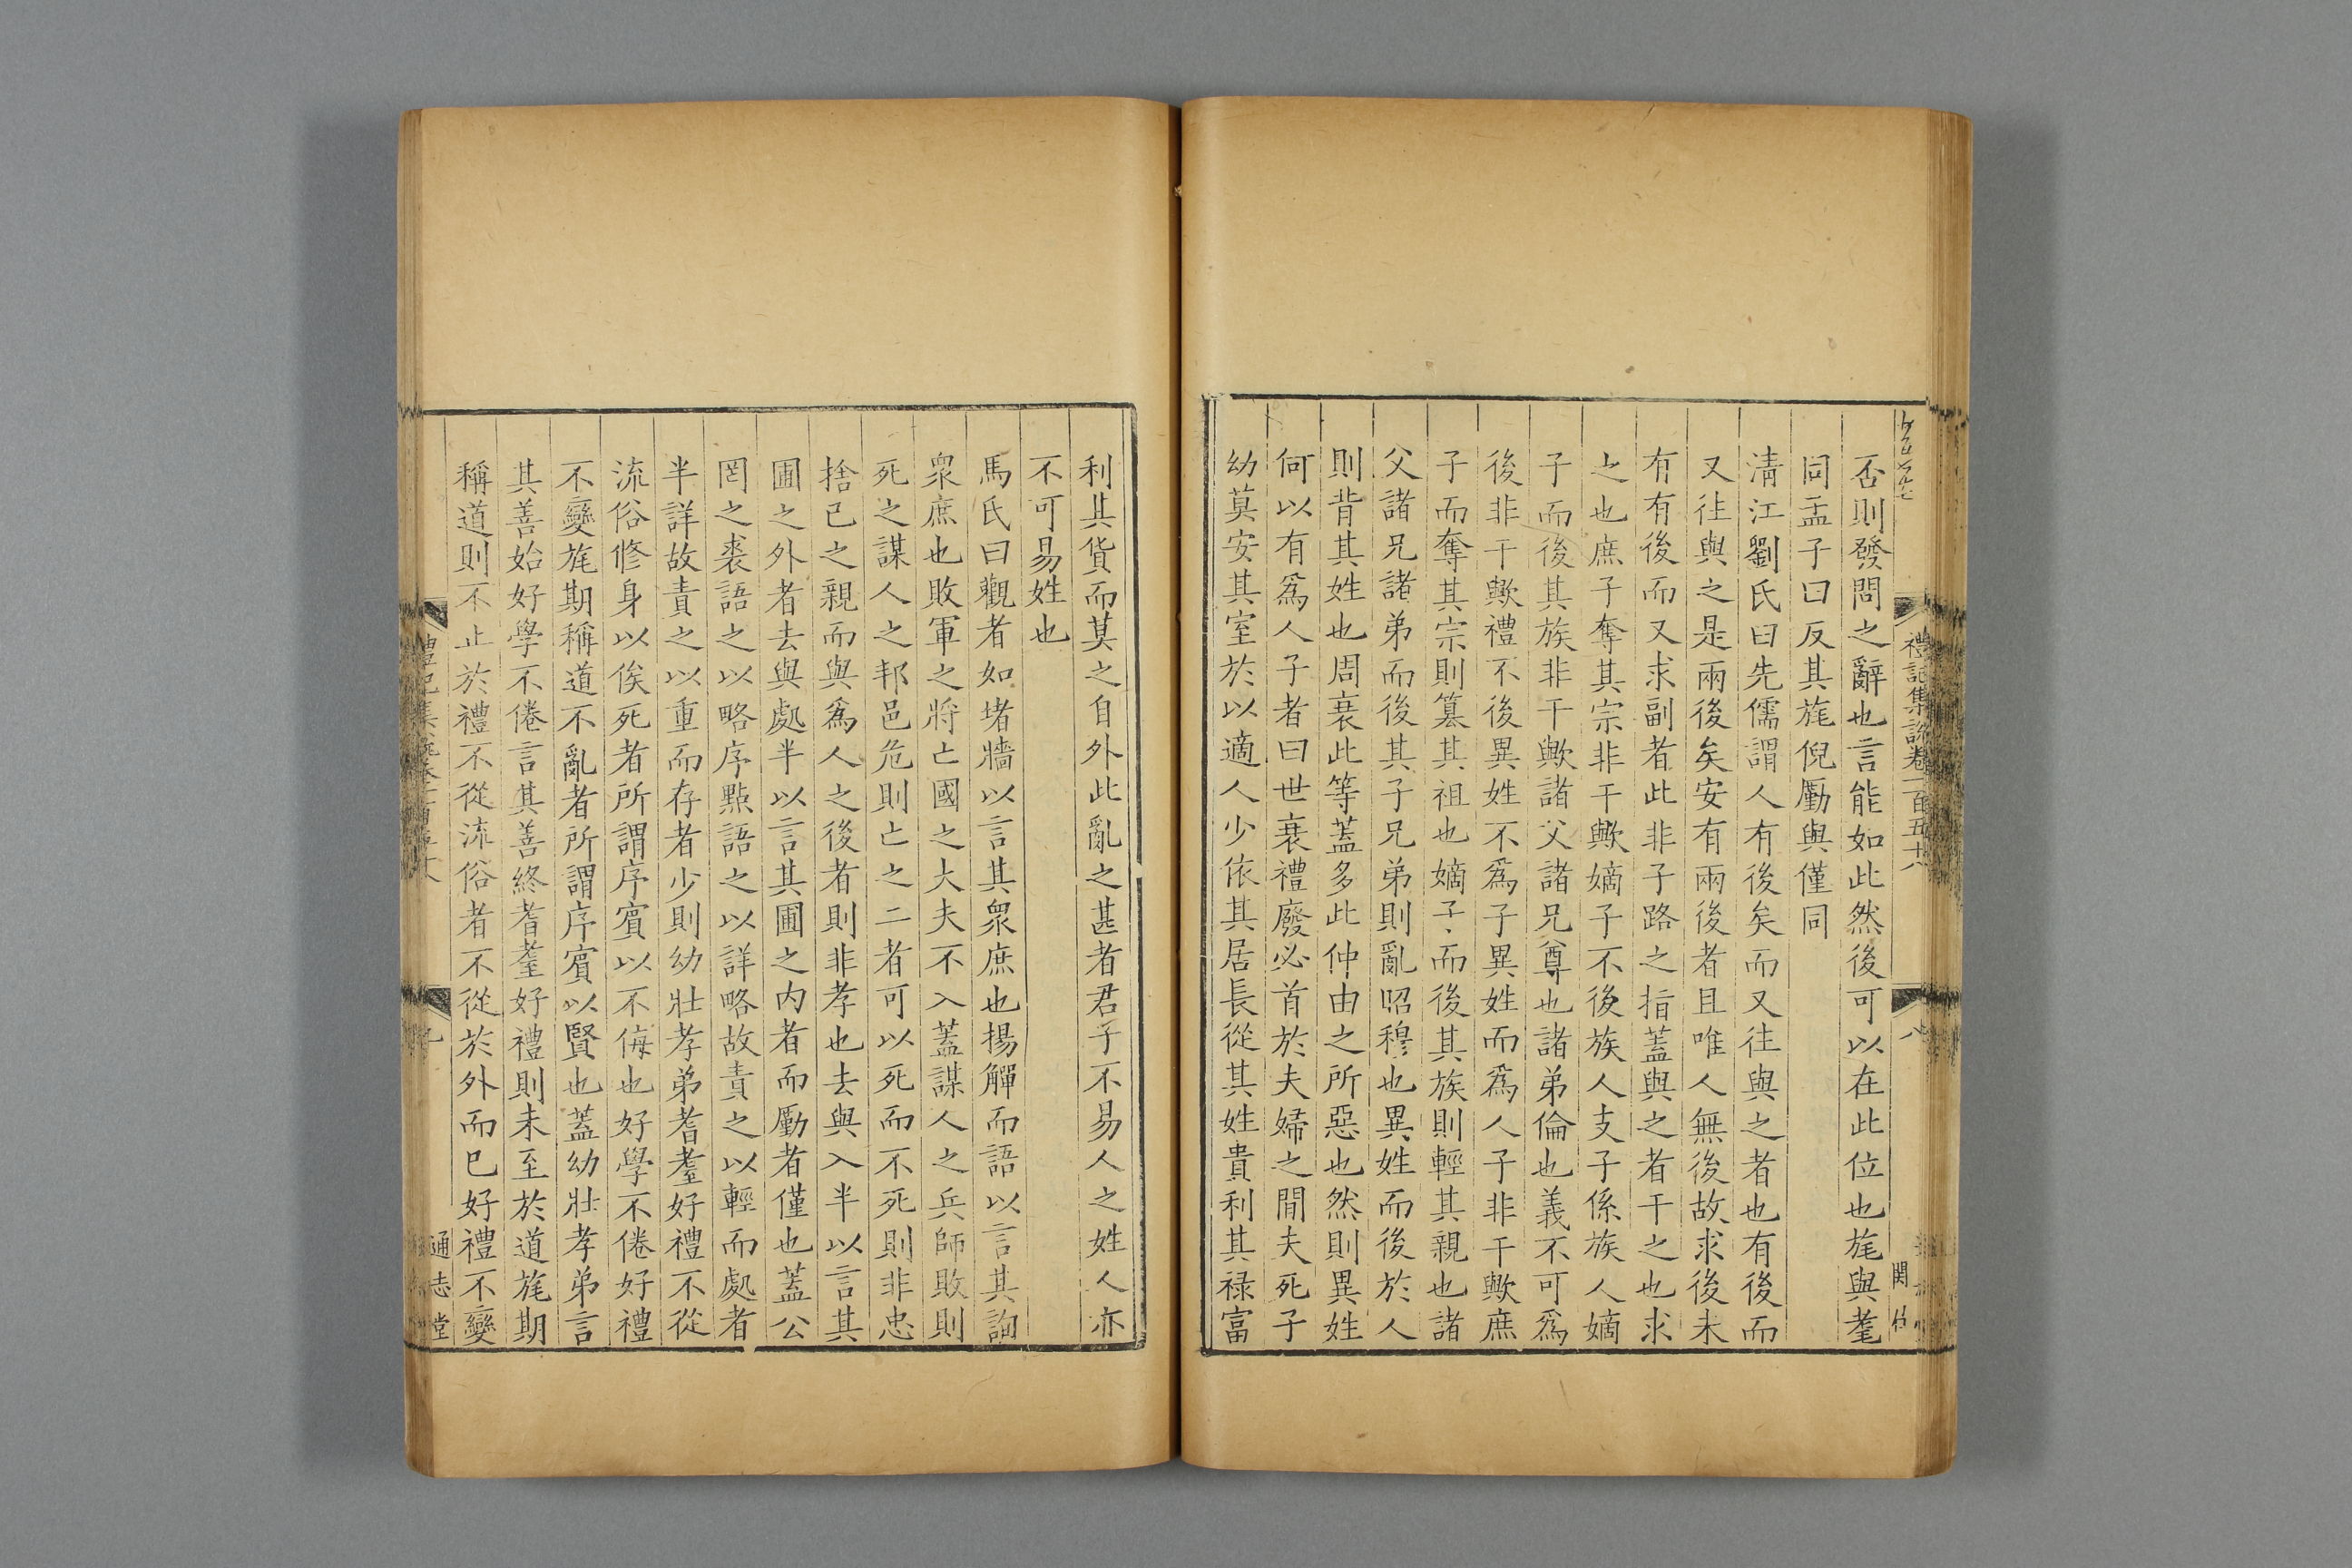 禮記集說卷一百五十八
八
否則發問之辭也言能如此然後可以在此位也旄與耄
同孟子曰反其旄倪勵與僅同
清江劉氏曰先儒謂人有後矣而又往與之者也有後而
又往與之是兩後矣安有兩後者且唯人無後故求後未
有有後而又求副者此非子路之指蓋與之者干之也求
之也庶子奪其宗非干歟嫡子不後族人支子係族人嫡
子而後其族非干歟諸父諸兄尊也諸弟倫也義不可爲
後非干歟禮不後異姓不爲子異姓而爲人子非干歟庶
子而奪其宗則篡其祖也嫡子而後其族則輕其親也諸
父諸兄諸弟而後其子兄弟則亂昭穆也異姓而後於人
則背其姓也周衰此等蓋多此仲由之所惡也然則異姓
何以有爲人子者曰世衰禮廢必首於夫婦之間夫死子
幼莫安其室於以適人少依其居長從其姓貴利其祿富
利其貨而其之自外此亂之甚者君子不易人之姓人亦
不可易姓也
馬氏曰觀者如堵牆以言其衆庶也揚觶而語以言其詢
衆庶也敗軍之將亡國之大夫不入蓋謀人之兵師敗則
死之謀人之邦邑危則亡之二者可以死而不死則非忠
捨己之親而與爲人之後者則非孝也去與入半以言其
圃之外者去與處半以言其圃之内者而勵者僅也蓋公
罔之裘語之以略序點語之以詳略故責之以輕而處者
半詳故責之以重而存者少則幼壯孝弟耆耋好禮不從
流俗修身以俟死者所謂序賓以不侮也好學不倦好禮
不變旄期稱道不亂者所謂序賓以賢也蓋幼壯孝弟言
其善始好學不倦言其善終耆耋好禮則未至於道旄期
稱道則不止於禮不從流俗者不從於外而已好禮不變
通志堂